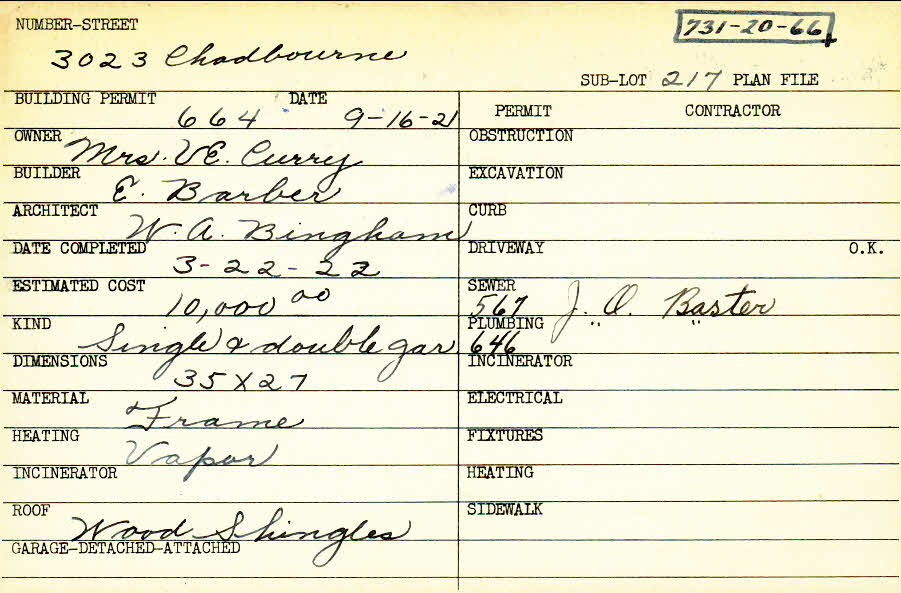 NUMBER-STREET
731-20-66
3023 Chadbourne
SUB-LOT 217 PLAN FILE
BUILDING PERMIT DATE
664 9-16-21
PERMIT CONTRACTOR
OWNER
Mrs. V.E. Curry
OBSTRUCTION
BUILDER
E. Barber
EXCAVATION
ARCHITECT
W. A. Bingham
CURB
DATE COMPLETED
3-22-22
DRIVEWAY O.K.
ESTIMATED COST
10,000 00
SEWER
567 J. O. Baster
KIND
Single & double gar.
PLUMBING
646 " "
DIMENSIONS
35 X 27
INCINERATOR
MATERIAL
Frame
ELECTRICAL
HEATING
Vapor
FIXTURES
INCINERATOR
HEATING
ROOF
Wood Shingles
SIDEWALK
GARAGE-DETACHED-ATTACHED